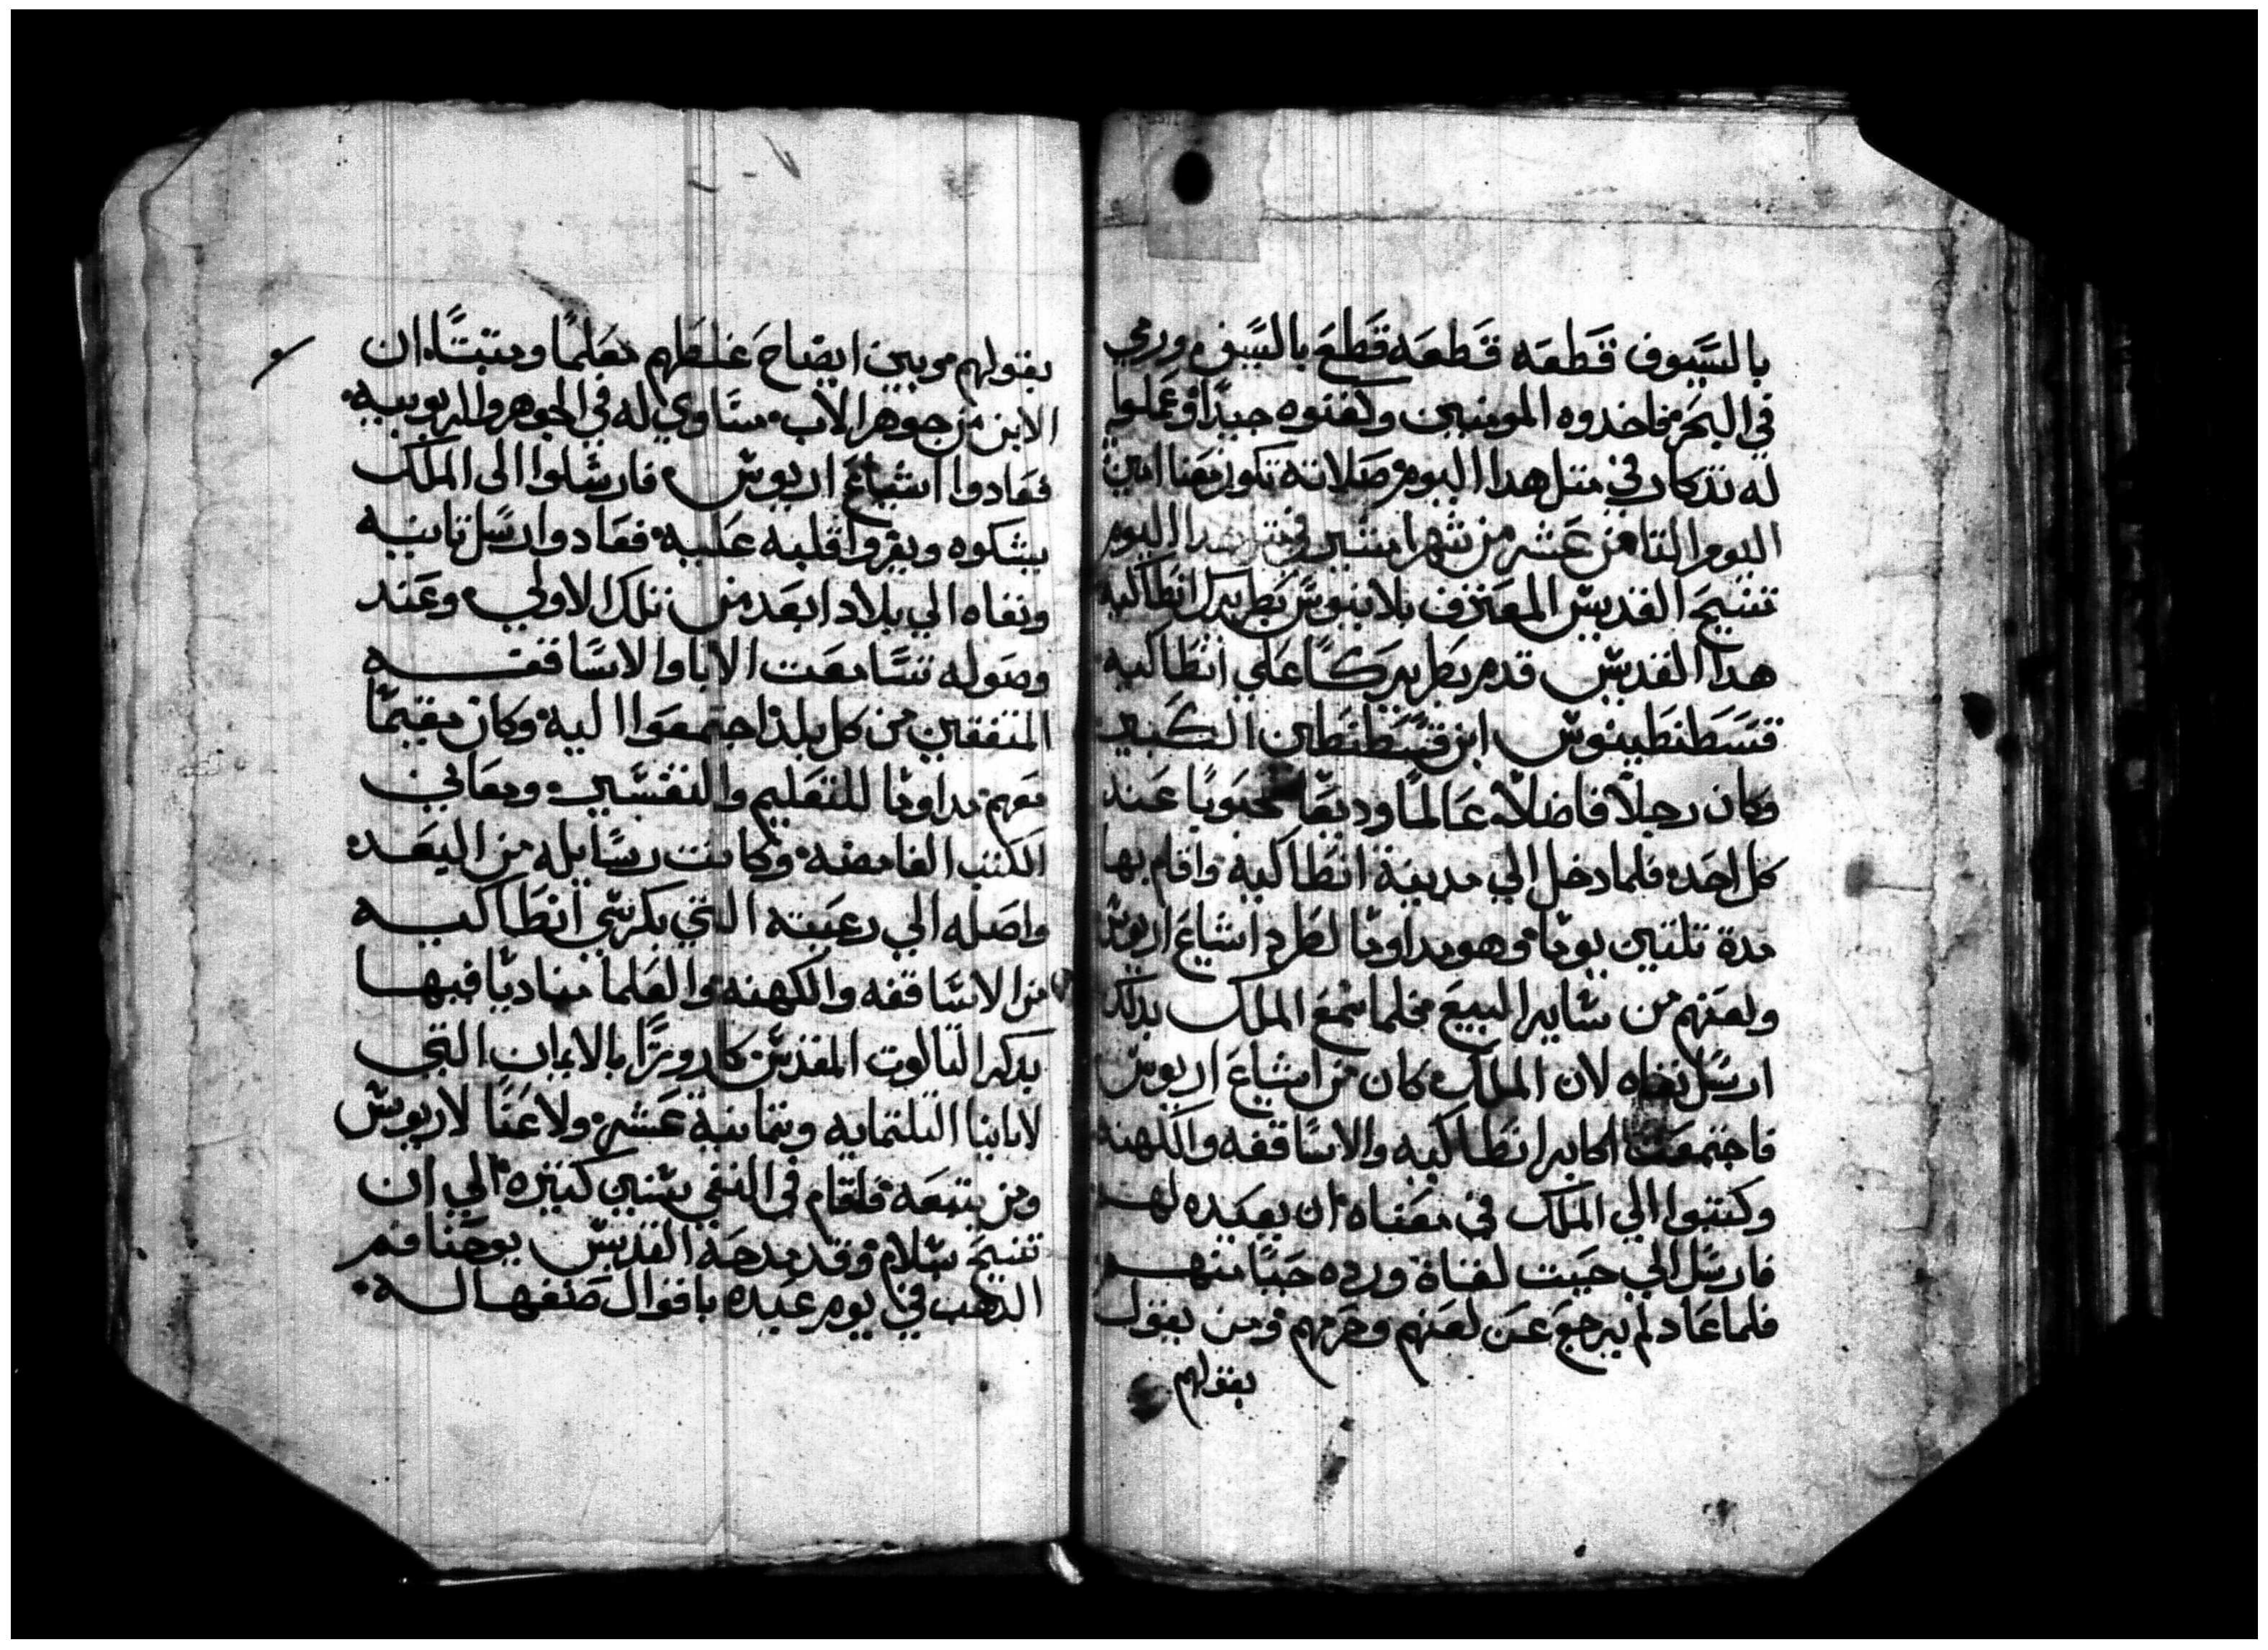 بالسيوف قطعه قطعه قطع بالسيف ورمي
في البحر فاخدوه المومنين وكفنوه جيدا وعملوا
له تدكار في متل هدا اليوم صلاته تكون معنا امين
اليوم التامن عشر من شهر امشير في متل هدا اليوم
تنيح القديس المعترف بلانيوس بطريرك انطاكيه
هدا القديس قدم بطريركا علي انطاكيه
قسطنطينوس ابن قسطنطين الكبير
وكان رجلا فاضلا عالما وديعا محبوبا عند
كل احد فلما دخل الي مدينة انطاكيه واقام بها
مدة تلتين يوما وهو مداوما لطرد اشياع اريوس
ولعنهم من ساير البيع فلما سمع الملك بدلك
ارسل نفاه لان الملك كان من اشياع اريوس
فاجتمعت اكابر انطاكيه والاساقفه والكهنه
وكتبوا الي الملك في معناه ان يعيده لهم
فارسل الي حيت لفناة ورده حبا منهم
فلما عاد لم يرجع عن لعنهم وحرمهم ومن يقول
بقولهم
بقولهم مو يبين ايضاح غلطهم معلما ومتبتا ان
الابن من جوهر الاب مساوي له في الجوهر والربوبيه
فعادوا اشياع اريوس فارسلوا الي الملك
يشكوه ويغروا قلبه عليه فعادوا ارسل تانيه
ونفاه الي بلاد ابعد من تلك الاولي وعند
وصوله تسامعت الابا والاساقفه
المتفقين من كل بلد اجتمعوا اليه وكان مقيما
معهم مداوما للتعليم والتفسير ومعاني
الكتب الغامضه وكانت رسايله من البعد
واصله الي رعيته التي بكرسي انطاكيه
من الاساقفه والكهنه والعلما مناديا فيها
بدكر التالوت المقدس كاروزا بالايمان التي
لابابنا التلتمايه وتمانية عشر ولاعنا لاريوس
ومن يتبعه فاقام في النفي سنين كتيره الي ان
تنيح بسلام وقد مدحه القديس يوحنا فم
الدهب في يوم عيده باقوال صنعها له